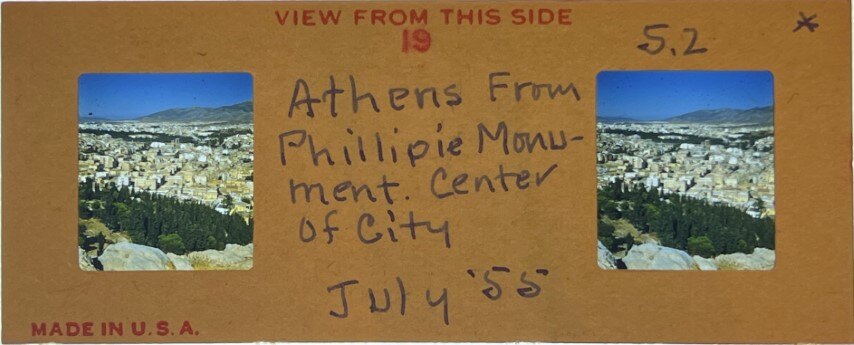 VIEW FROM THIS SIDE
19
5.2 *
Athens From
Phillipie Monu-
ment. Center
of City
July '55
MADE IN U.S.A.